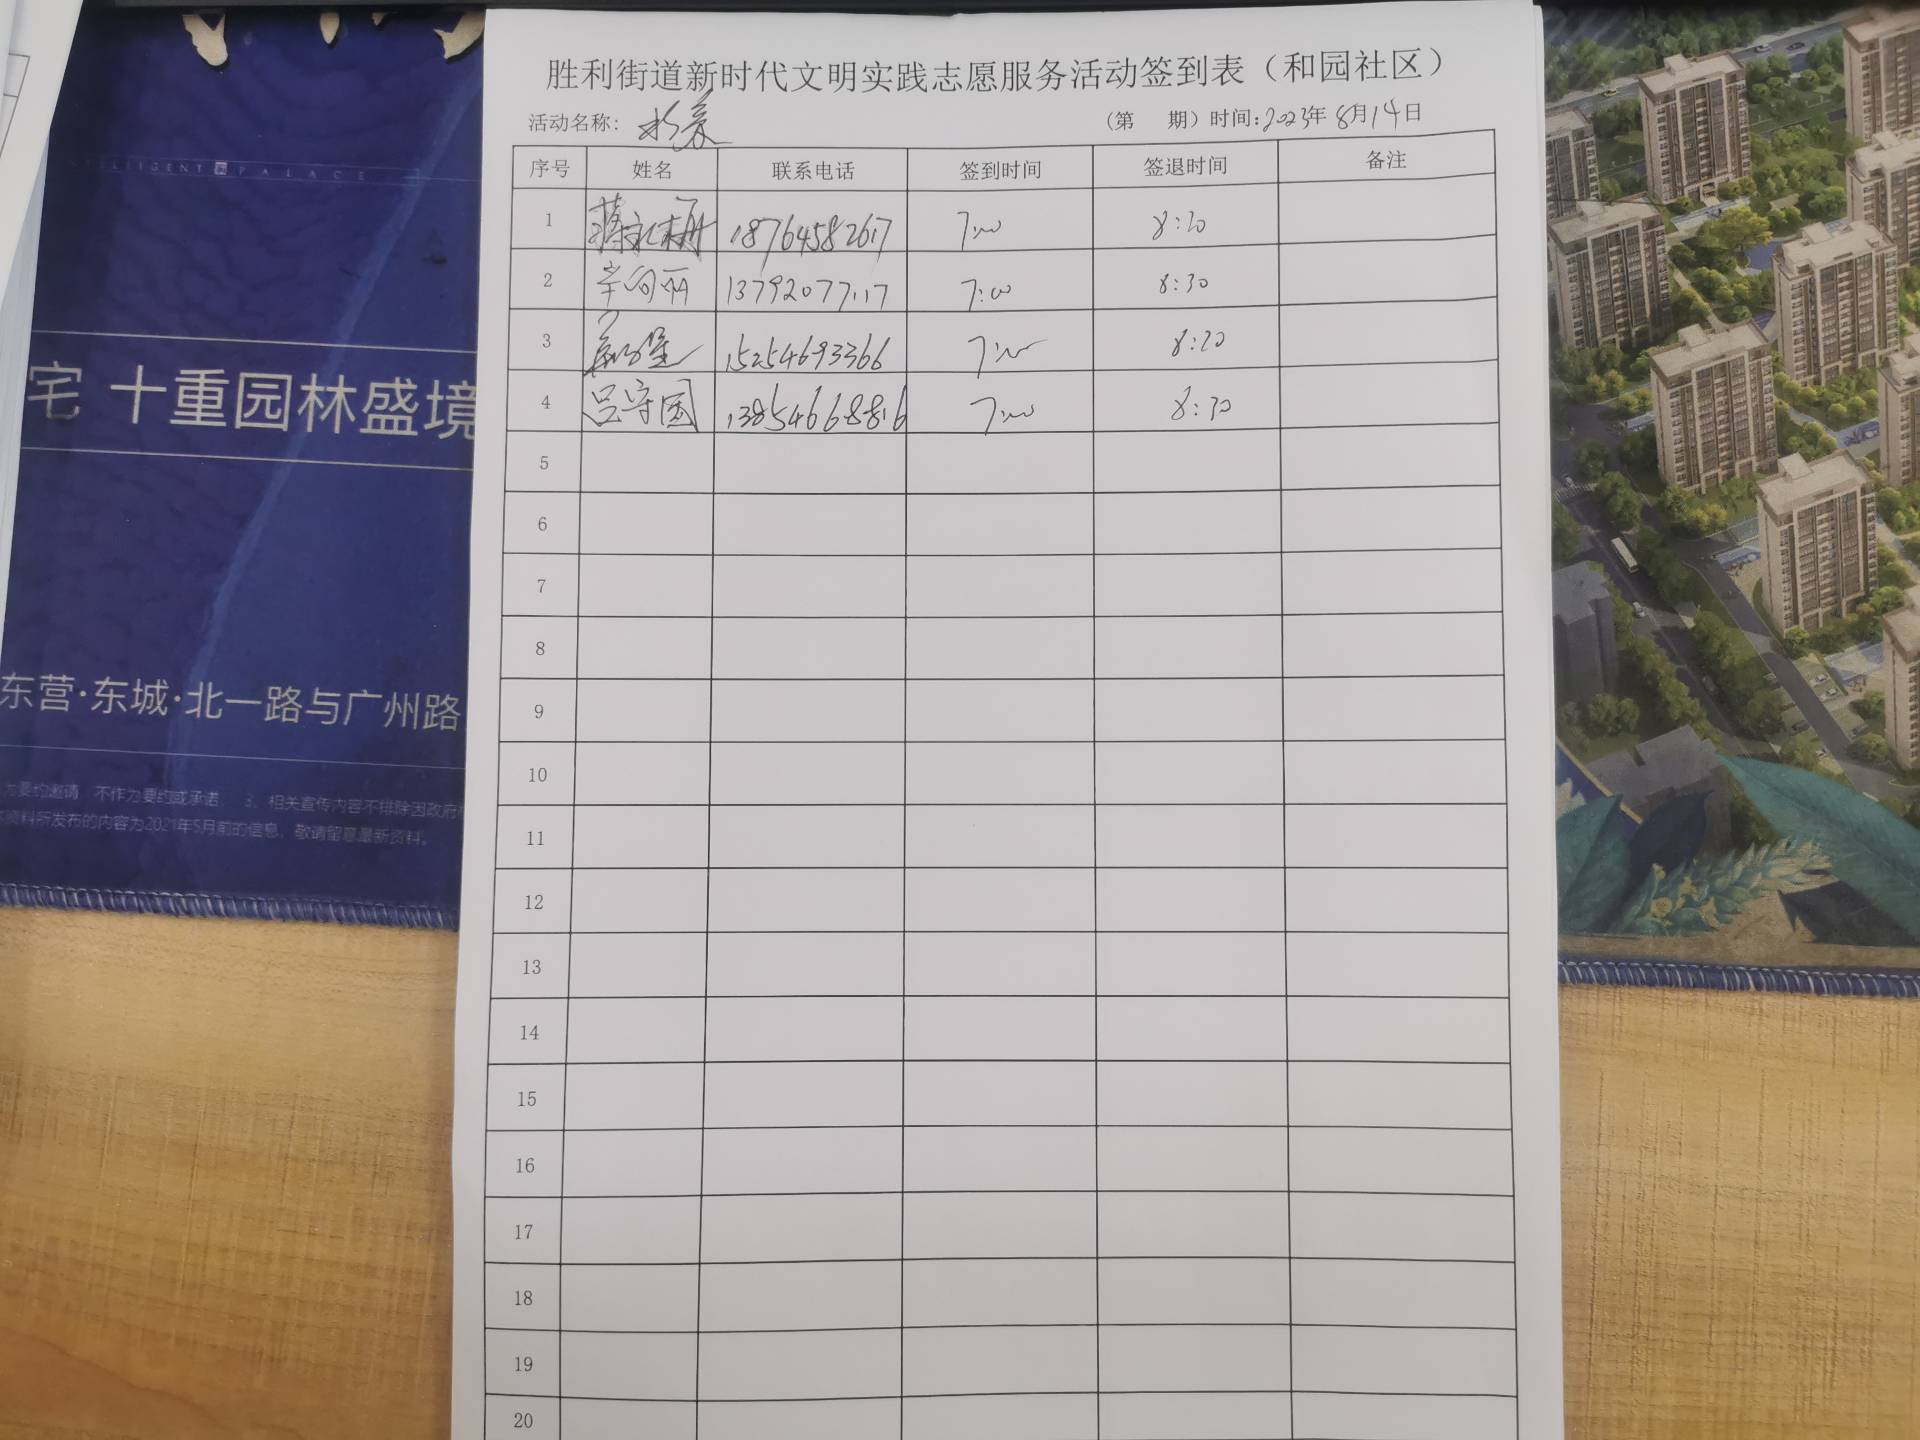 胜利街道新时代文明实践志愿服务活动签到表（和园社区）
活动名称：
（第 期）时间：2023年8月14日
序号 姓名 联系电话 签到时间 签退时间 备注
1 18764582617 7:00 8:30
2 辛向丽 13792077117 7:00 8:30
3 15254693366 7:00 8:30
4 吕守国 13854668816 7:00 8:30
5
6
7
8
9
10
11
12
13
14
15
16
17
18
19
20
TELLIGENT PALACE
宅 十重园林盛境
东营·东城·北一路与广州路
为要约邀请 不作为要约或承诺 3、相关宣传内容不排除因政府
资料所发布的内容为2021年5月前的信息，敬请留意最新资料。